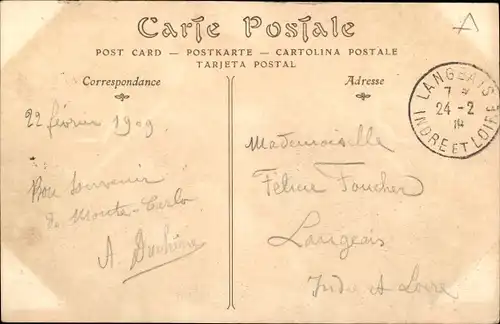 Carte Postale
POST CARD — POSTKARTE — CARTOLINA POSTALE
TARJETA POSTAL
Correspondance
Adresse
LANGEAIS
7
24-2
INDRE ET LOIRE
22 février 1909
Bon Souvenir
de Monte-Carlo
A
Mademoiselle
Félicie Foucher
Langeais
Indre et Loire